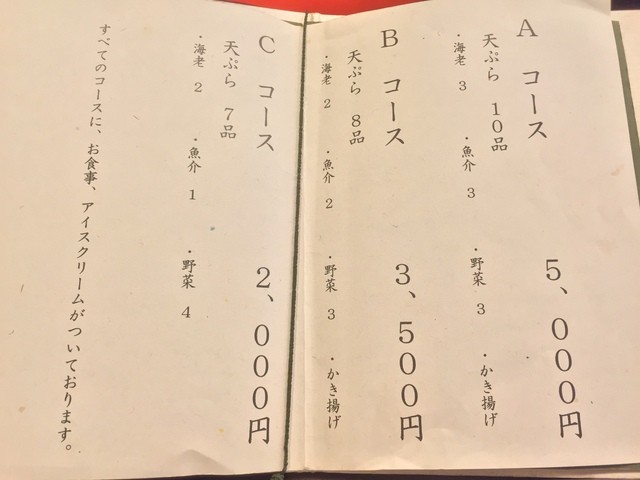 A コース 5、000円
天ぷら 10品
・海老 3 ・魚介 3 ・野菜 3 ・かき揚げ
B コース 3、500円
天ぷら 8品
・海老 2 ・魚介 2 ・野菜 3 ・かき揚げ
C コース 2、000円
天ぷら 7品
・海老 2 ・魚介 1 ・野菜 4
すべてのコースに、お食事、アイスクリームがついております。